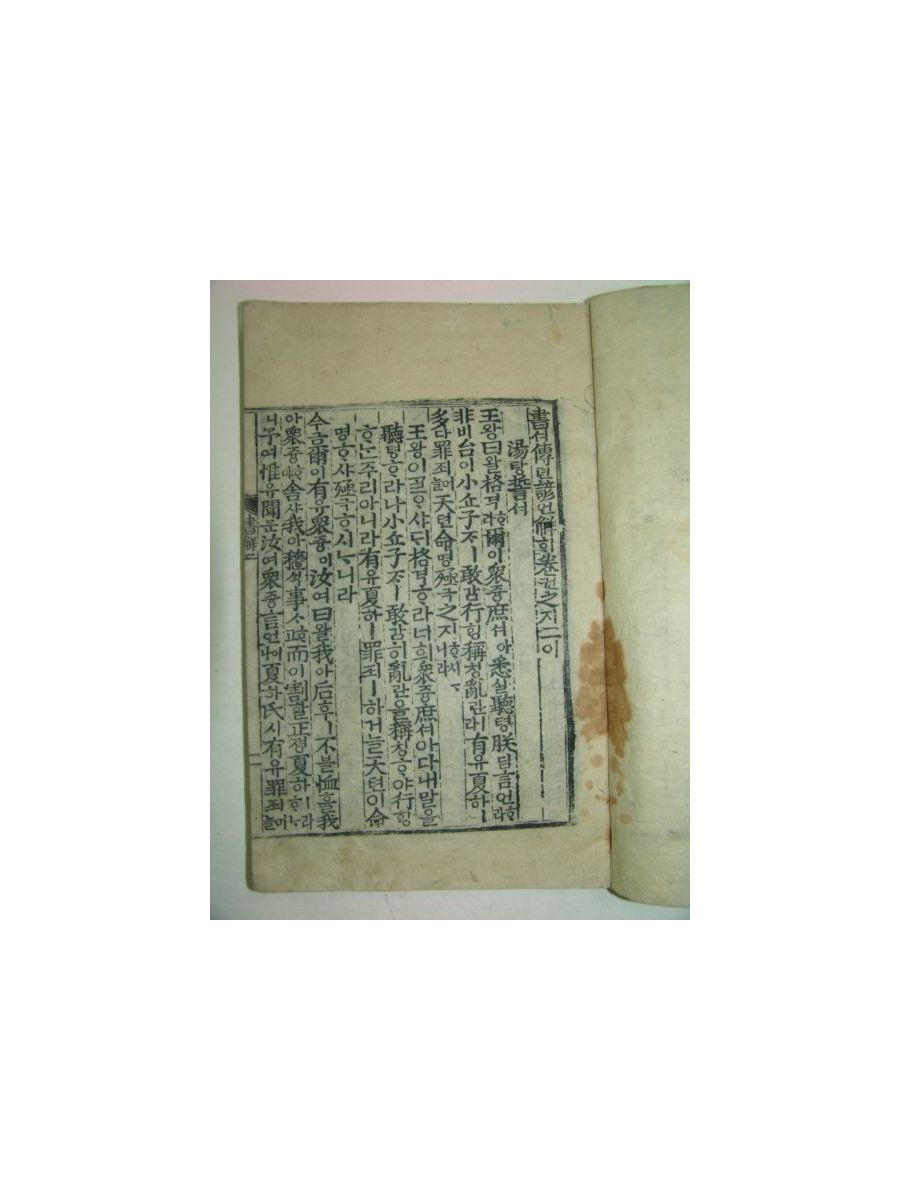 書셔傳뎐諺언解ᄒᆡ卷권之지二이
湯탕誓셔
王왕曰왈格격ᄒᆞ라爾이衆즁庶셔아悉실聽텽朕딤言언ᄒᆞ라
非비台이小쇼子ᄌᆞㅣ敢감行ᄒᆡᆼ稱칭亂란이라有유夏하ㅣ
多다罪죄어늘天텬命명殛극之지ᄒᆞ시ᄂᆞ니라
王왕이ᄀᆞᆯᄋᆞ샤ᄃᆡ格격ᄒᆞ라너희衆즁庶셔아다내말을
聽텽ᄒᆞ라나小쇼子ᄌᆞㅣ敢감히亂란을稱칭ᄒᆞ야行ᄒᆡᆼ
ᄒᆞᄂᆞᆫ주리아니라有유夏하ㅣ罪죄ㅣ하거늘天텬이命
명ᄒᆞ샤殛극ᄒᆞ시ᄂᆞ니라
今금爾이有유衆즁이汝여曰왈我아后후ㅣ不블恤휼我
아衆즁ᄒᆞ야舍샤我아穡ᄉᆡᆨ事ᄉᆞ而이割할正졍夏하ㅣ라ᄒᆞᄂᆞ
니予여惟유聞문汝여衆즁言언이나夏하氏시有유罪죄ᄒᆞ늘
書解二